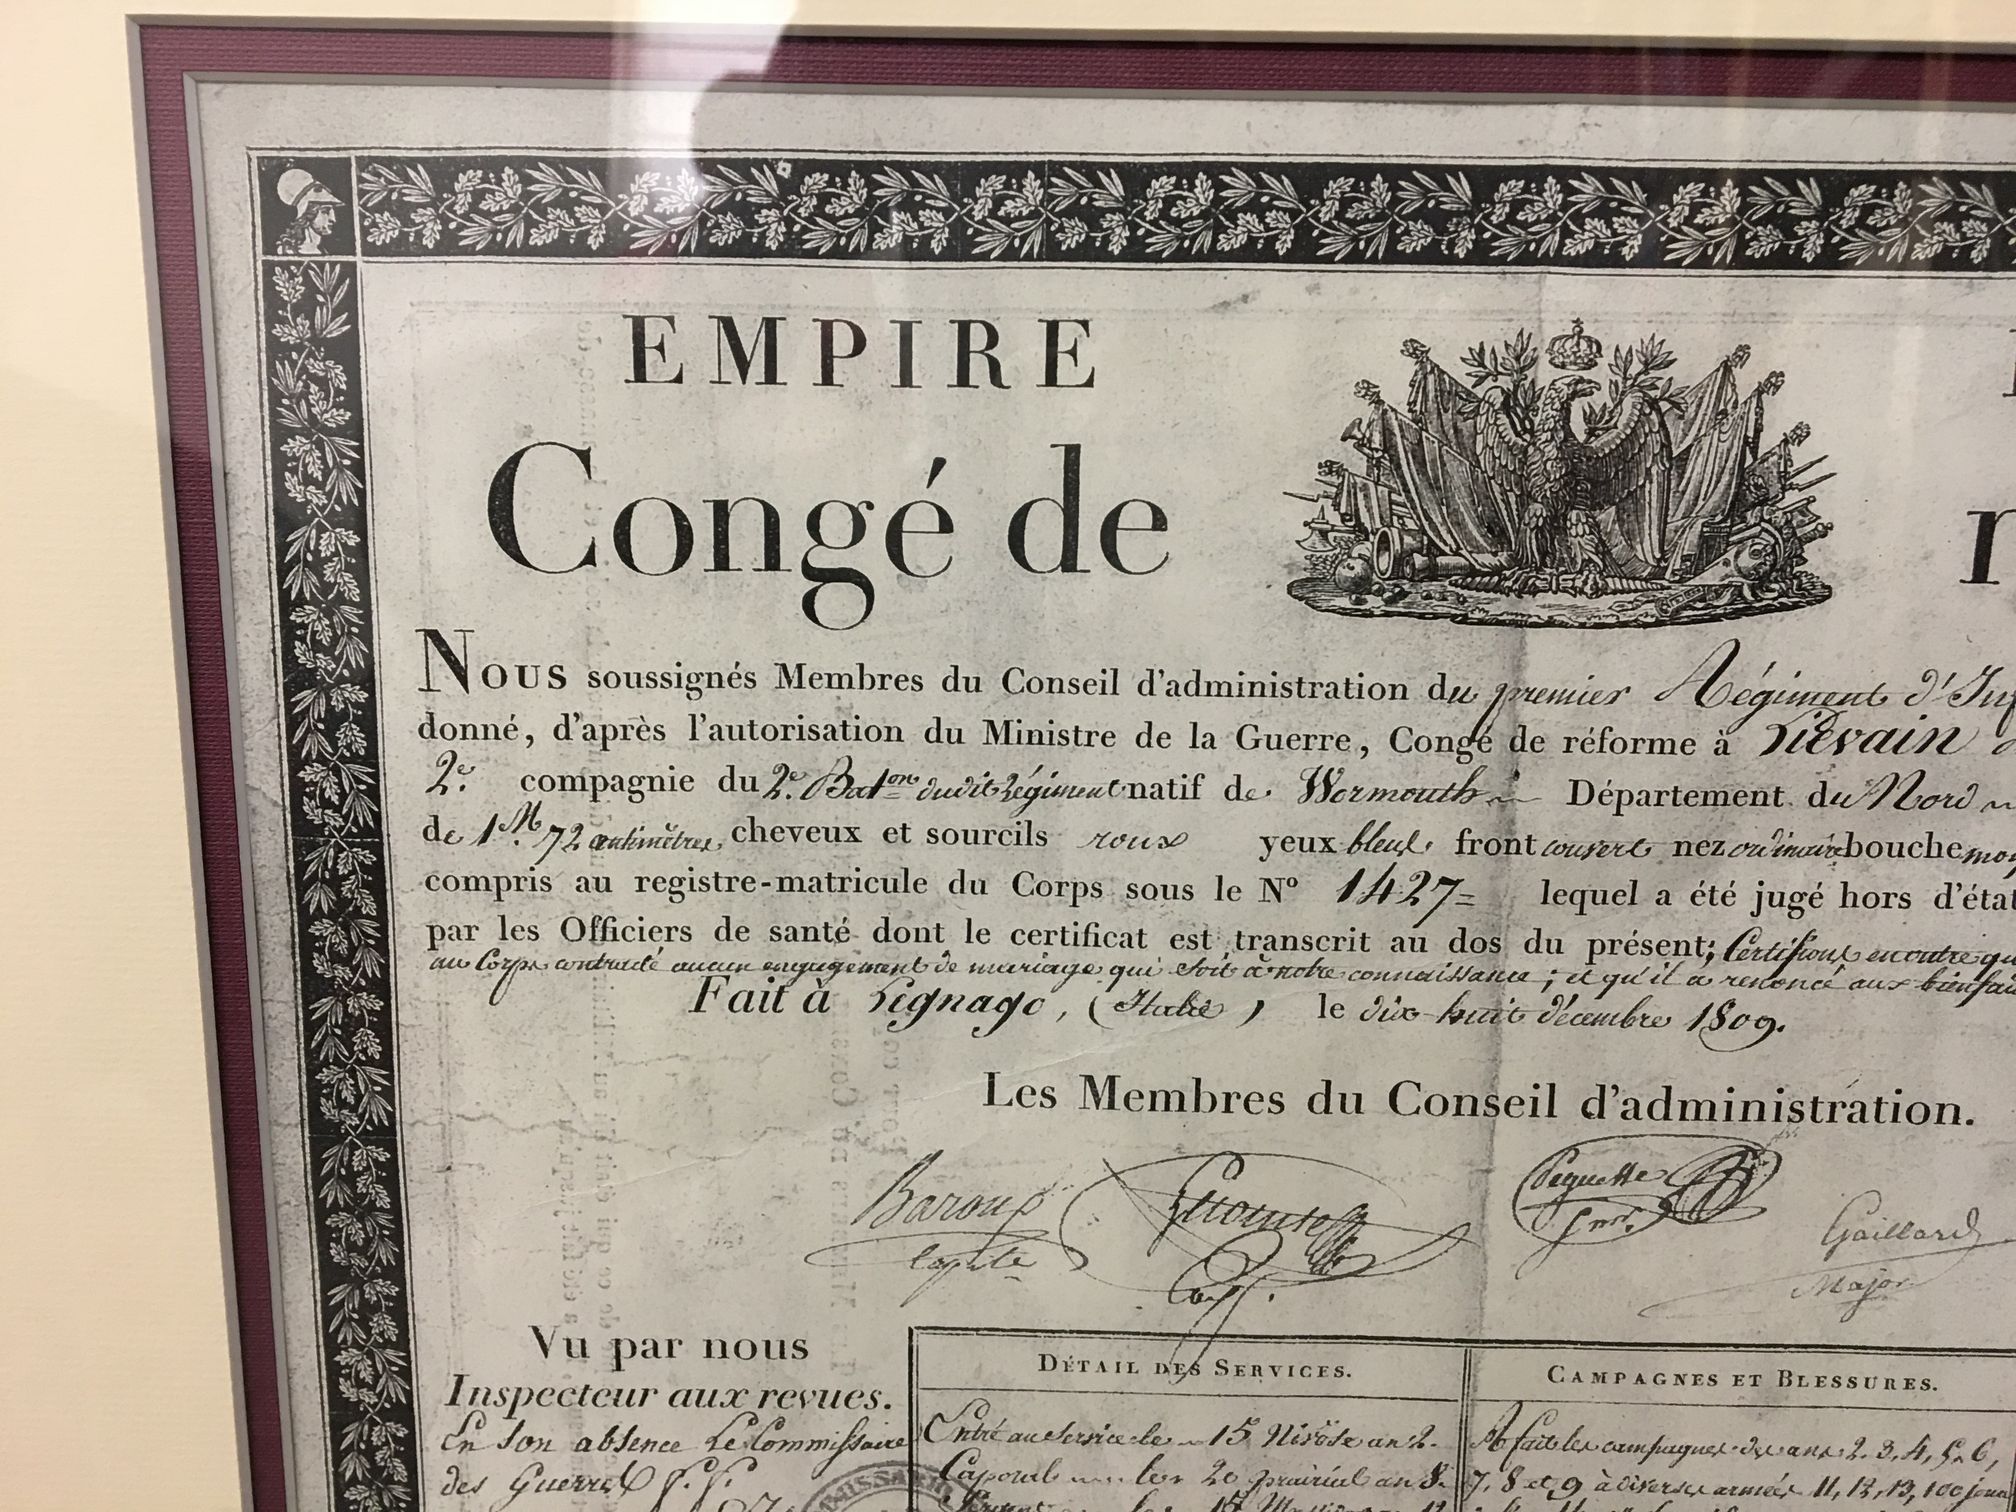 EMPIRE
Congé de
NOUS soussignés Membres du Conseil d'administration du premier Régiment d'Inf
donné, d'après l'autorisation du Ministre de la Guerre, Congé de réforme à Liévain
2e. compagnie du 2e. Baton dudit Régiment natif de Wormouth Département du Nord
de 1M. 72 centimètres, cheveux et sourcils roux yeux bleus front couvert nez ordinaire bouche moy
compris au registre-matricule du Corps sous le No 1427= lequel a été jugé hors d'état
par les Officiers de santé dont le certificat est transcrit au dos du présent; Certifions en outre qu
au Corps contracté aucun engagement de mariage qui soit à notre connaissance; et qu'il a renoncé aux bienfai
Fait à Legnago, (Italie) le dix huit décembre 1809.
Les Membres du Conseil d'administration.
Baroux Gaillard
Major
Vu par nous
Inspecteur aux revues.
En son absence Le Commissaire
des Guerres
DÉTAIL DES SERVICES.
Entré au service le 15 Nivôse an 2.
Caporal le 20 prairial an 8.
CAMPAGNES ET BLESSURES.
A fait les campagnes des ans 2. 3. 4, 5. 6,
7, 8 et 9 à diverses armées 11, 12, 13, 100 jours